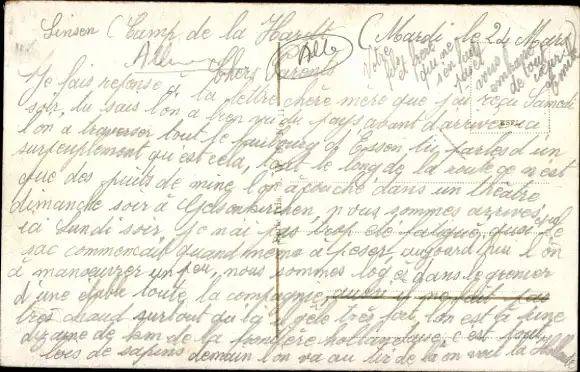 Sinsen (Camp de la Haredt (Mardi le 24 Mars
Allemagne (Alle)
Chers Parents
Je fais reponse à la lettre chère mère que j'ai reçu Samedi
soir, du sais l'on a rien du pays, avant d'arriver ici
l'on a traverser tout le faubourg d'Essen tu parles d'un
surpeuplement qu'est cela, tout le long de la route ce n'est
que des puits de mine, l'on a couché dans un théâtre
dimanche soir à Gelsenkirchen, nous sommes arrivés
ici Lundi soir je n'ai pas trop de fatigue, quoi que le
sac commencait quand même à peser, aujourd'hui l'on
a manoeuvrer un peu, nous sommes loger dans le grenier
d'une etable toute la compagnie,
très chaud surtout qu'il gèle très fort l'on est à une
dizaine de km de la frontière hollandaise, c'est tout
bois de sapins demain l'on va au tir de là on voit la Hollande
Votre fils
qui ne
vous
embrasse
de tout
coeur